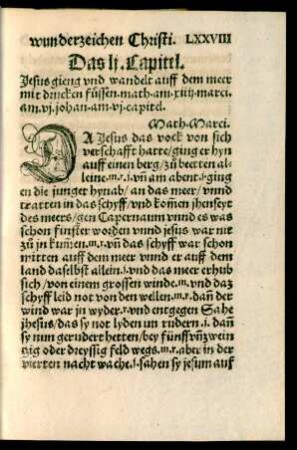 wunderzeichen Christi. LXXVIII
Das lj. Capittel.
Jesus gieng vnd wandelt auff dem meer
mit drucken füssen. math. am. xiiij. marci.
am. vj. johan. am. vj. capitel.
Math. Marci.
DA Jesus das volck von sich
verschafft hatte / ging er hyn
auff einen berg / zů beetten al-
leine. m. r. i. vñ am abent. i. ging
en die junger hynab / an das meer / vnnd
tratten in das schyff / vnd komen jhenseyt
des meers / gen Capernaum vnnd es was
schon finster worden vnnd jesus war nit
zů jn kumen. m. r. vñ das schyff war schon
mitten auff dem meer vnnd er auff dem
land daselbst allein. i. vnd das meer erhub
sich / von einem grossen winde. m. vnd daz
schyff leid not von den wellen. m. r. dañ der
wind war jn wyder. r. vnd entgegen Sahe
jhesus / das sy not lyden un rudern. i. dañ
sy nun gerudert hetten / bey fünff vñ zwein
tzig oder dreyssig feld wegs. m. r. aber in der
vierten nacht wache. i. sahen sy jesum auf